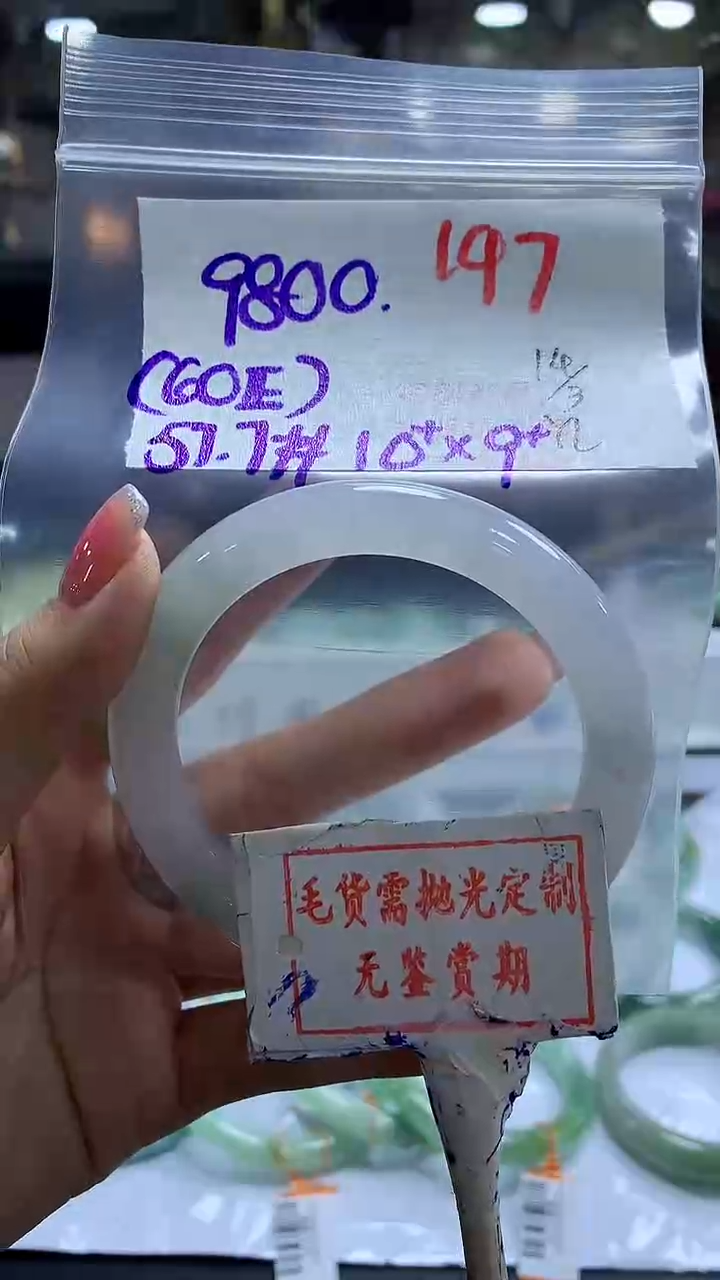 9800. 197
(GOE)
57.7# 10⁺×9⁺
毛货需抛光定制
无鉴赏期